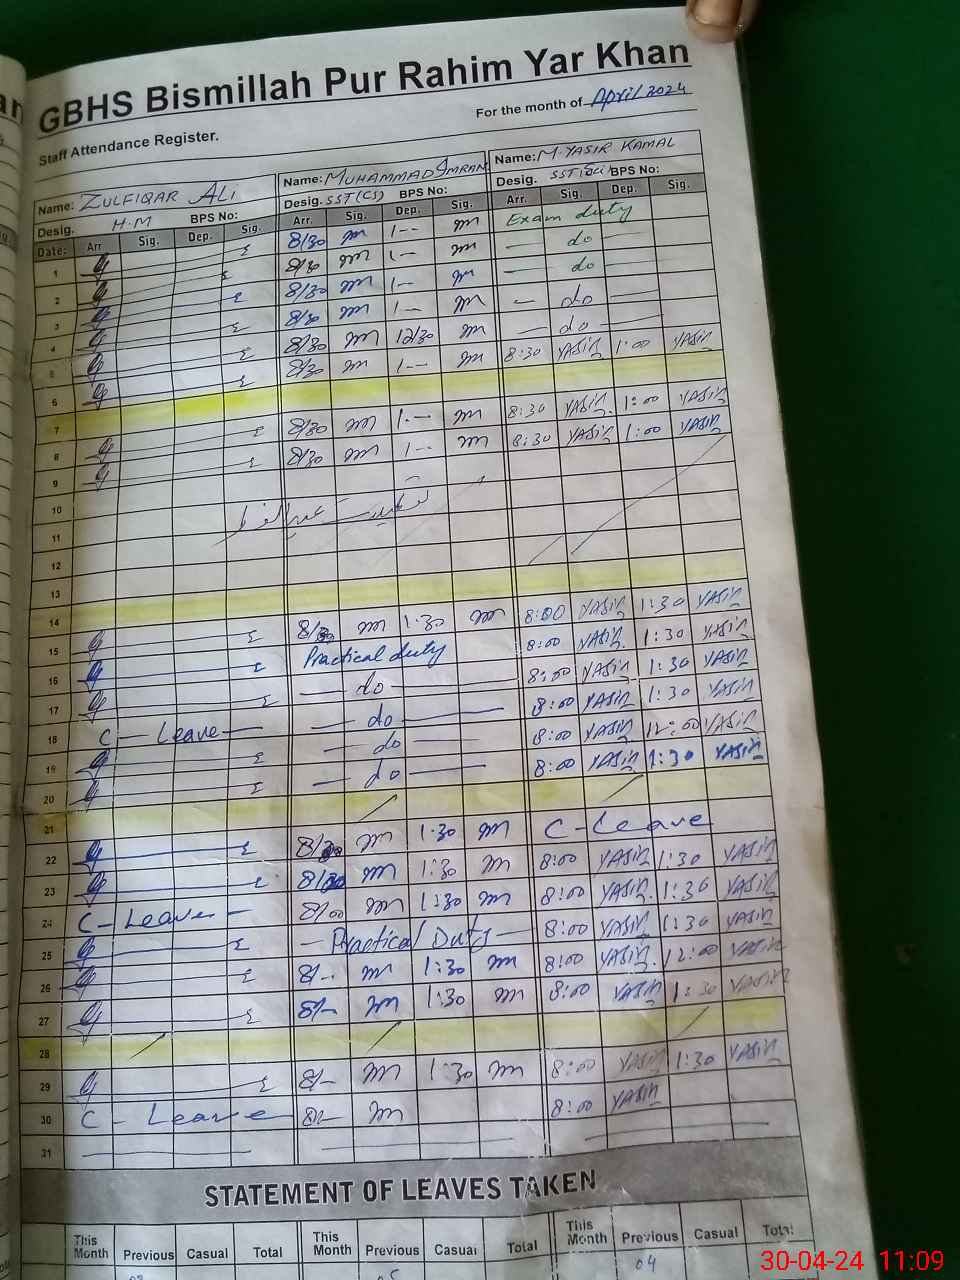 GBHS Bismillah Pur Rahim Yar Khan
Staff Attendance Register.
For the month of April 2024
Name: ZULFIQAR ALI Name: MUHAMMAD IMRAN Name: M. YASIR KAMAL
Desig. H.M BPS No: Desig. SST (CS) BPS No: Desig. SST (Sci) BPS No:
Date: Arr. Sig. Dep. Sig. Arr. Sig. Dep. Sig. Arr. Sig. Dep. Sig.
1 8/30 m 1-- m Exam duty
2 8/30 m 1-- m — do —
3 8/30 m 1-- m — do —
4 8/30 m 1-- m — do —
5 8/30 m 12/30 m — do —
6 8/30 m 1-- m 8:30 YASIR 1:00 YASIR
7
8 8/30 m 1-- m 8:30 YASIR 1:00 YASIR
9 8/30 m 1-- m 8:30 YASIR 1:00 YASIR
10
11
12
13
14
15 8/30 m 1:30 m 8:00 YASIR 1:30 YASIR
16 Practical duty 8:00 YASIR 1:30 YASIR
17 — do — 8:00 YASIR 1:30 YASIR
18 C — Leave — — do — 8:00 YASIR 1:30 YASIR
19 — do — 8:00 YASIR 12:00 YASIR
20 — do — 8:00 YASIR 1:30 YASIR
21
22 8/30 m 1:30 m C - Leave
23 8/30 m 1:30 m 8:00 YASIR 1:30 YASIR
24 C - Leave - 8/00 m 1:30 m 8:00 YASIR 1:30 YASIR
25 — Practical Duty — 8:00 YASIR 1:30 YASIR
26 8/-- m 1:30 m 8:00 YASIR 12:00 YASIR
27 8/-- m 1:30 m 8:00 YASIR 1:30 YASIR
28
29 8/- m 1:30 m 8:00 YASIR 1:30 YASIR
30 C - Leave 8/- m 8:00 YASIR
31
STATEMENT OF LEAVES TAKEN
This Month Previous Casual Total This Month Previous Casual Total This Month Previous Casual Total
04
30-04-24 11:09